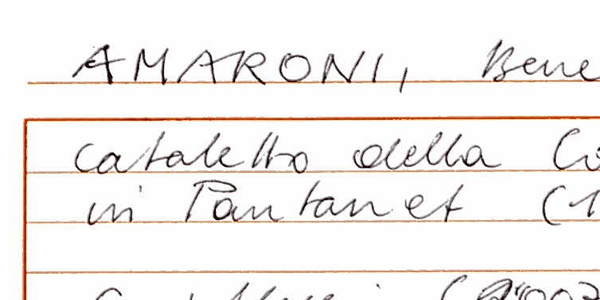 AMARONI, Bene
cataletto della Co
in Pantanet (1